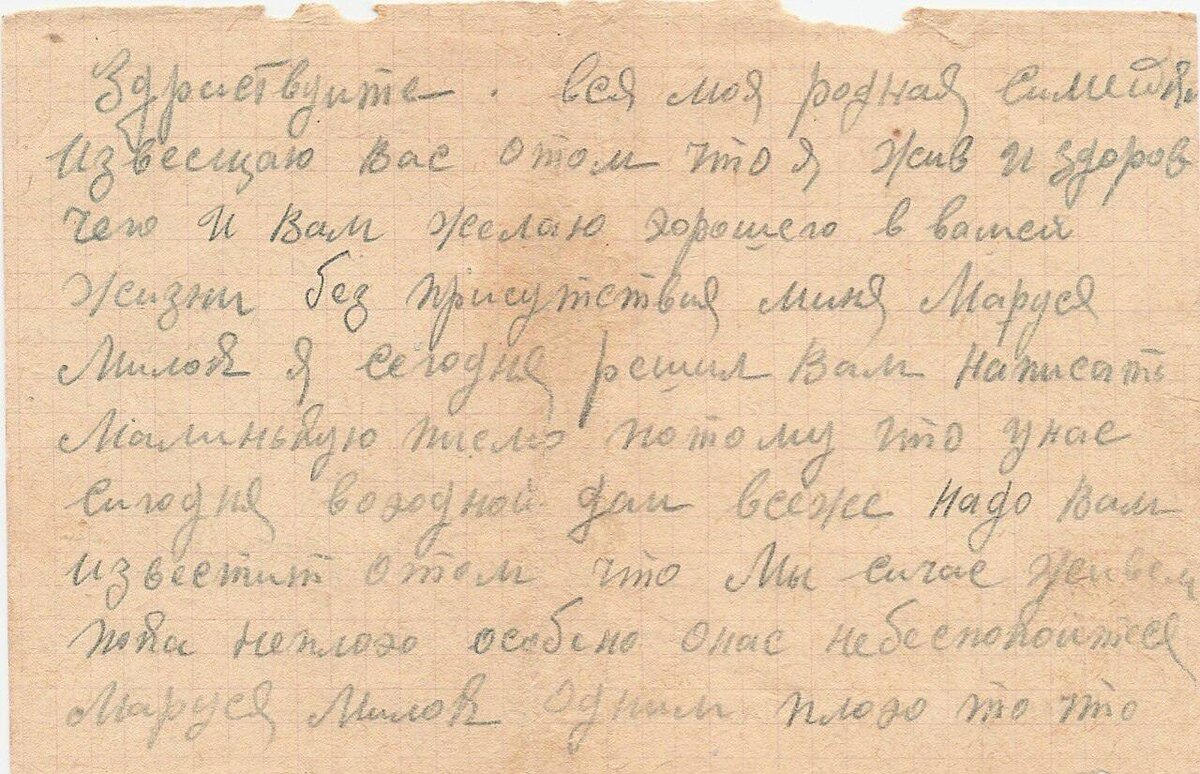 Здриствуите. вся моя родная симейка
извесщаю вас отом что я жив и здоров
чего и вам желаю хорошего в вашей
жизни без присутствия миня Маруся
Милая я сегодня решил вам написать
Малинькую писмо потому что унас
сигодня воходной дам всеже надо вам
известит отом что Мы сичас живем
пока неплохо особено онас небеспокойтеся
Маруся Милая одним плохо то что